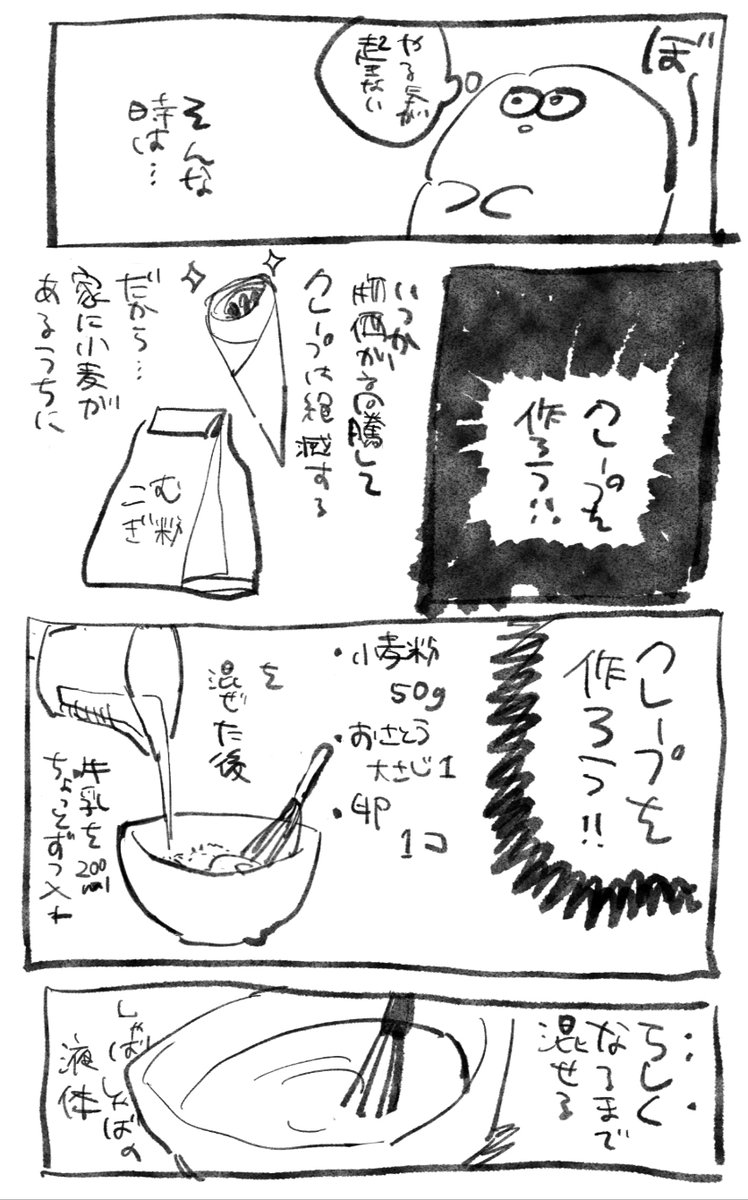 ぼ〜
やる気が
起きない
そんな
時は…
クレープを
作ろう!!
いつか
物価が高騰して
クレープは絶滅する
だから…
家に小麦が
あるうちに
こむ
ぎ粉
クレープを
作ろう!!
・小麦粉
50g
・おさとう
大さじ1
・卵
1コ
を
混ぜた後
牛乳を200ml
ちょっとずつ入れ
らしく
なるまで
混ぜる
しゃばしゃばの
液体